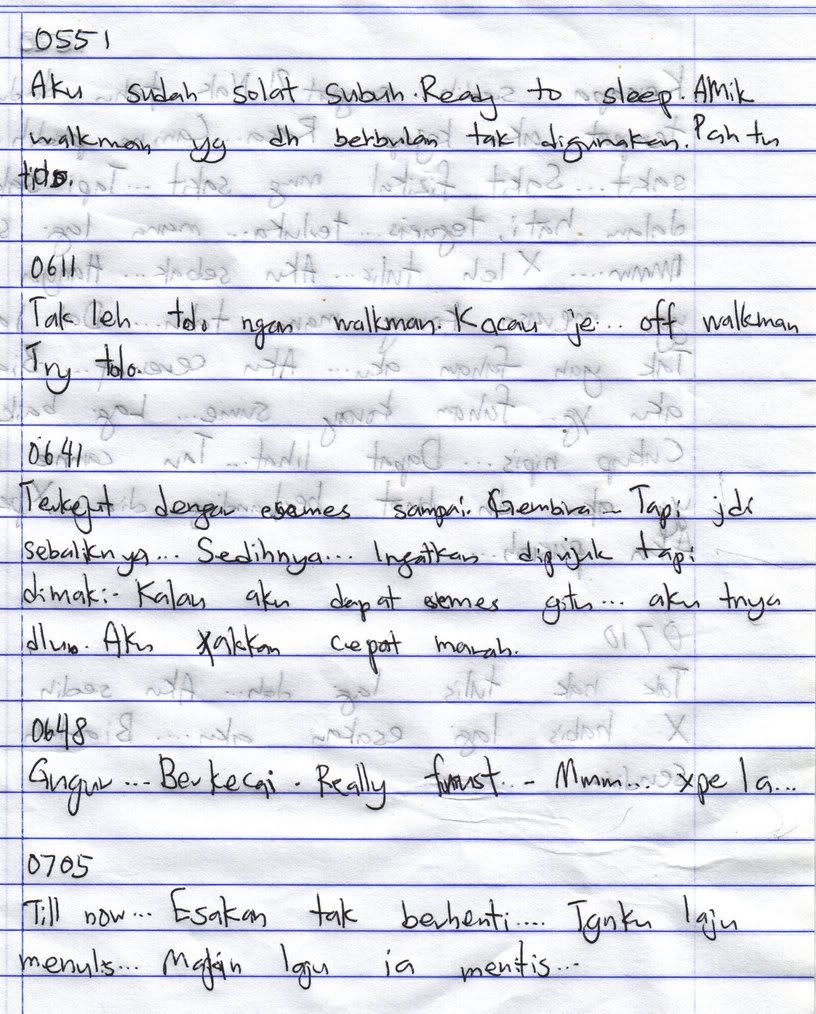 0551
Aku sudah solat subuh. Ready to sleep. Amik
walkman yg dh berbulan tak digunakan. Pah tu
tido.
0611
Tak leh tdo ngan walkman. Kacau je... off walkman
Try tdo.
0641
Terkejut dengar esemes sampai. Gembira.. Tapi jdi
sebaliknya... Sedihnya... Ingatkan dipujuk tapi
dimaki.. Kalau aku dapat esemes gitu... aku tnya
dlu. Aku xakkan cepat marah.
0648
Gugur... Berkecai. Really ... Mmm... xpe la...
0705
Till now... Esakan tak berhenti.... Tgnku laju
menulis... Makin laju ia menitis...